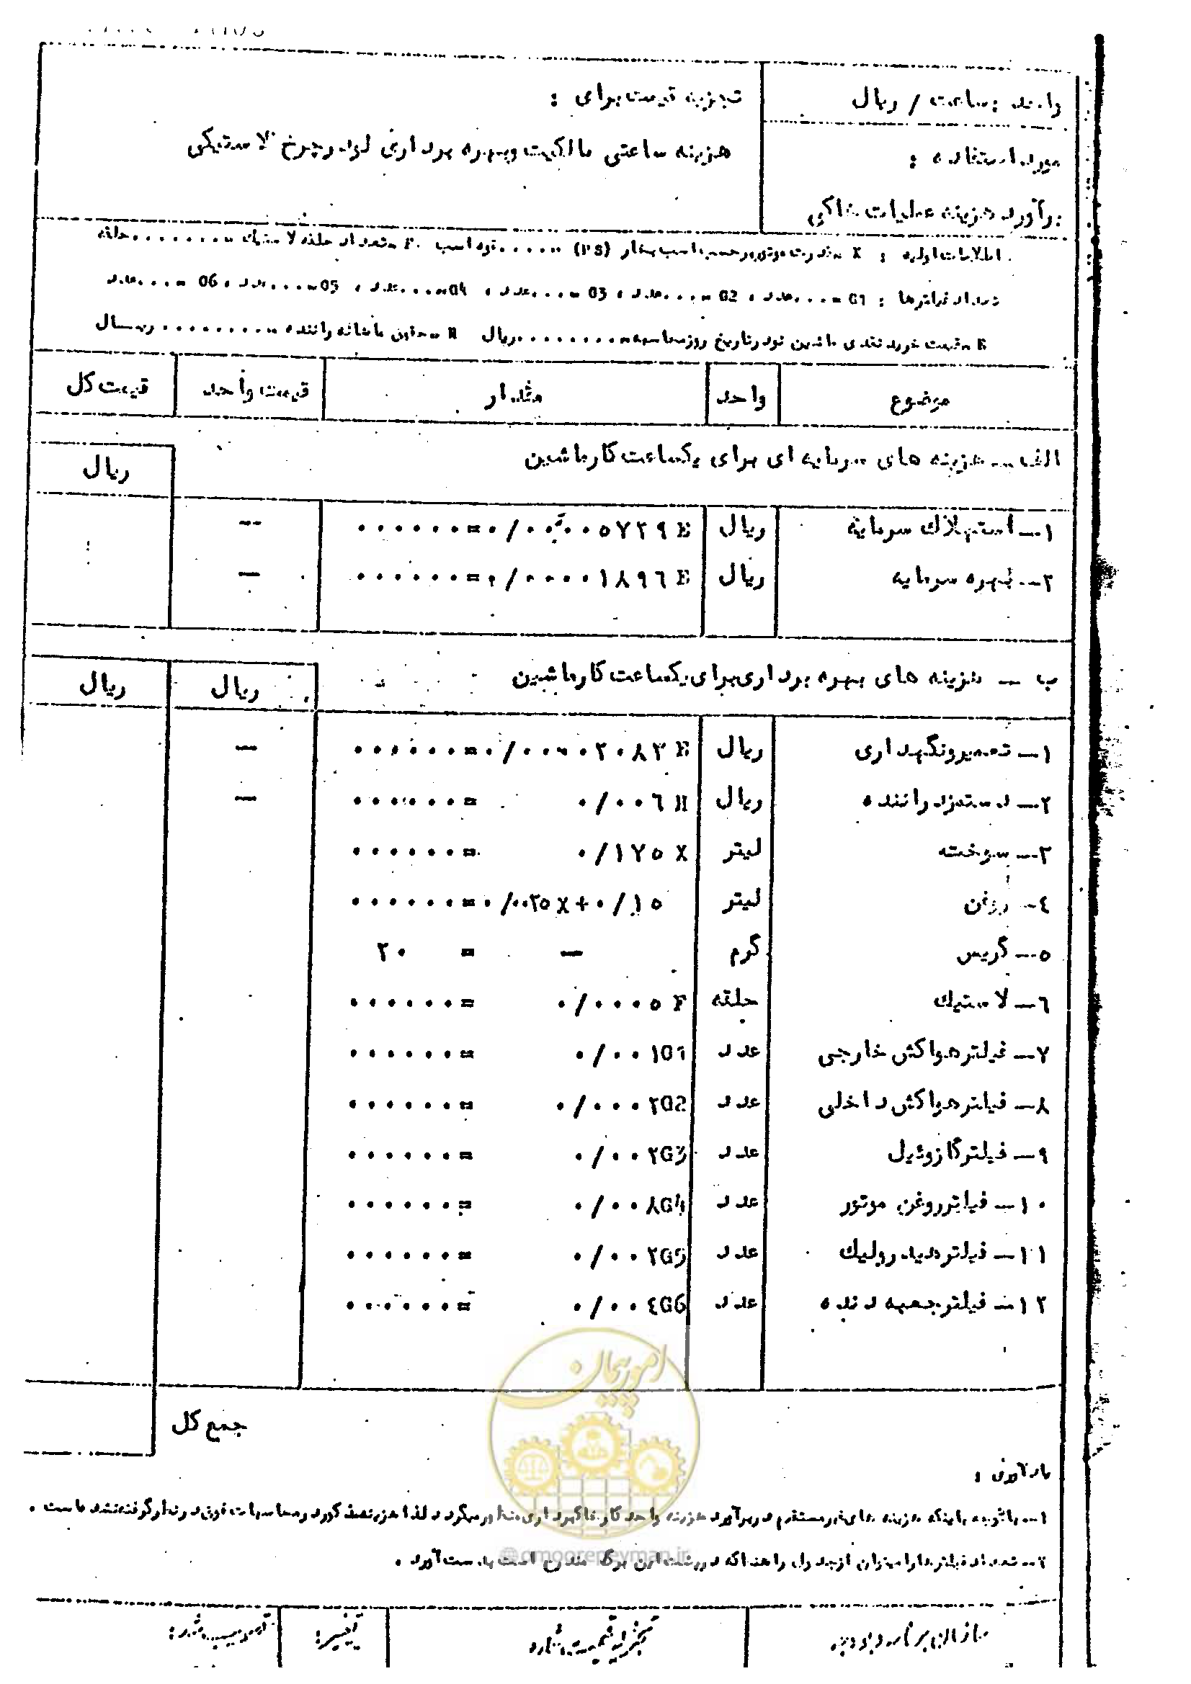 واحد : ساعت / ریال
مورد استفاده :
برآورد هزینه عملیات خاکی
تجزیه قیمت برای :
هزینه ساعتی مالکیت وبهره برداری لودرچرخ لاستیکی
اطلاعات اولیه : X =قدرت موتوربرحسب اسب بخار (PS) =......قوه اسب F =تعداد حلقه لاستیک =........حلقه
تعداد فیلترها : G1 =....عدد ، G2 =....عدد ، G3 =....عدد ، G4 =....عدد ، G5 =....عدد ، G6 =....عدد
E =قیمت خرید نقدی ماشین نو در تاریخ روز محاسبه=.........ریال H =حقوق ماهانه راننده =.........ریال
موضوع واحد مقدار قیمت واحد قیمت کل
الف ـ هزینه های سرمایه ای برای یکساعت کارماشین ریال
۱ـ استهلاک سرمایه ریال ۰/۰۰۰۰۵۷۲۹E =...... –
۲ـ بهره سرمایه ریال ۰/۰۰۰۰۱۸۹۶E =...... –
ب ـ هزینه های بهره برداری برای یکساعت کارماشین ریال ریال
۱ـ تعمیرونگهداری ریال ۰/۰۰۰۰۲۰۸۳E =...... –
۲ـ دستمزد راننده ریال ۰/۰۰۶H =...... –
۳ـ سوخته لیتر ۰/۱۷۵X =......
۴ـ روغن لیتر ۰/۰۰۲۵X+۰/۱۵ =......
۵ـ گریس گرم – = ۲۰
۶ـ لاستیک حلقه ۰/۰۰۰۵F =......
۷ـ فیلترهواکش خارجی عدد ۰/۰۰۱G1 =......
۸ـ فیلترهواکش داخلی عدد ۰/۰۰۰۲G2 =......
۹ـ فیلترگازوئیل عدد ۰/۰۰۲G3 =......
۱۰ـ فیلترروغن موتور عدد ۰/۰۰۸G4 =......
۱۱ـ فیلترهیدرولیک عدد ۰/۰۰۲G5 =......
۱۲ـ فیلترجعبه دنده عدد ۰/۰۰۴G6 =......
جمع کل
امور پیمان
یادآوری :
۱ـ باتوجه باینکه هزینه های غیرمستقیم دربرآورد هزینه واحد کار خاکبرداری منظور میگردد لذا هزینه مذکور در محاسبات فوق در نظر گرفته نشده است .
@omoorepeyman.ir
۲ـ تعداد فیلترها را میتوان ازجدول راهنما که در پشت این برگ مندرج است بدست آورد .
سازمان برنامه و بودجه تجزیه قیمت شماره تغییر: تصویب شد: